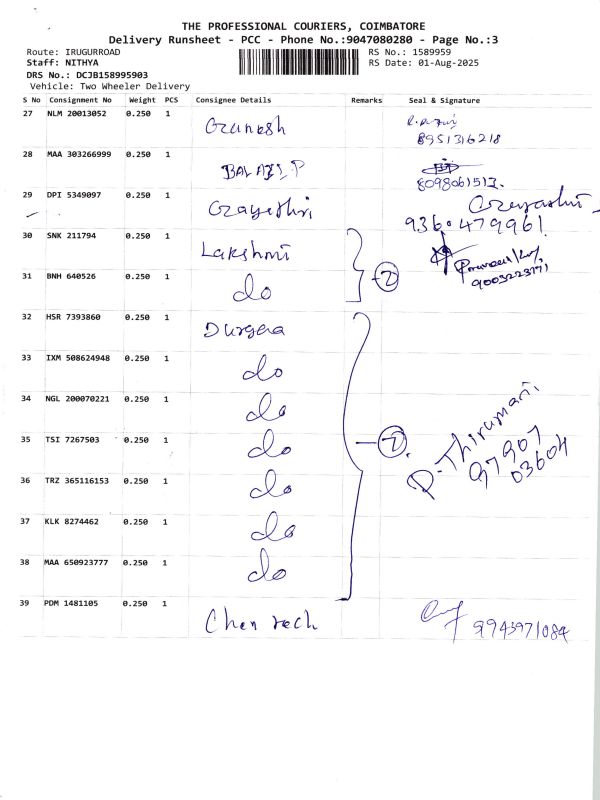 THE PROFESSIONAL COURIERS, COIMBATORE
Delivery Runsheet - PCC - Phone No.:9047080280 - Page No.:3
Route: IRUGURROAD
RS No.: 1589959
Staff: NITHYA
RS Date: 01-Aug-2025
DRS No.: DCJB158995903
Vehicle: Two Wheeler Delivery
S No Consignment No Weight PCS Consignee Details Remarks Seal & Signature
27 NLM 20013052 0.250 1 Ganesh
8951316218
28 MAA 303266999 0.250 1 BALAJI P
8098061513.
29 DPI 5349097 0.250 1 Gayathri Gayathri
9360479961
30 SNK 211794 0.250 1 Lakshmi
9003223171
31 BNH 640526 0.250 1 do 2
32 HSR 7393860 0.250 1 Durga
33 IXM 508624948 0.250 1 do
34 NGL 200070221 0.250 1 do
35 TSI 7267503 0.250 1 do 7 P. Thirumani
97907
03604
36 TRZ 365116153 0.250 1 do
37 KLK 8274462 0.250 1 do
38 MAA 650923777 0.250 1 do
39 PDM 1481105 0.250 1 Chen tech 9943971084